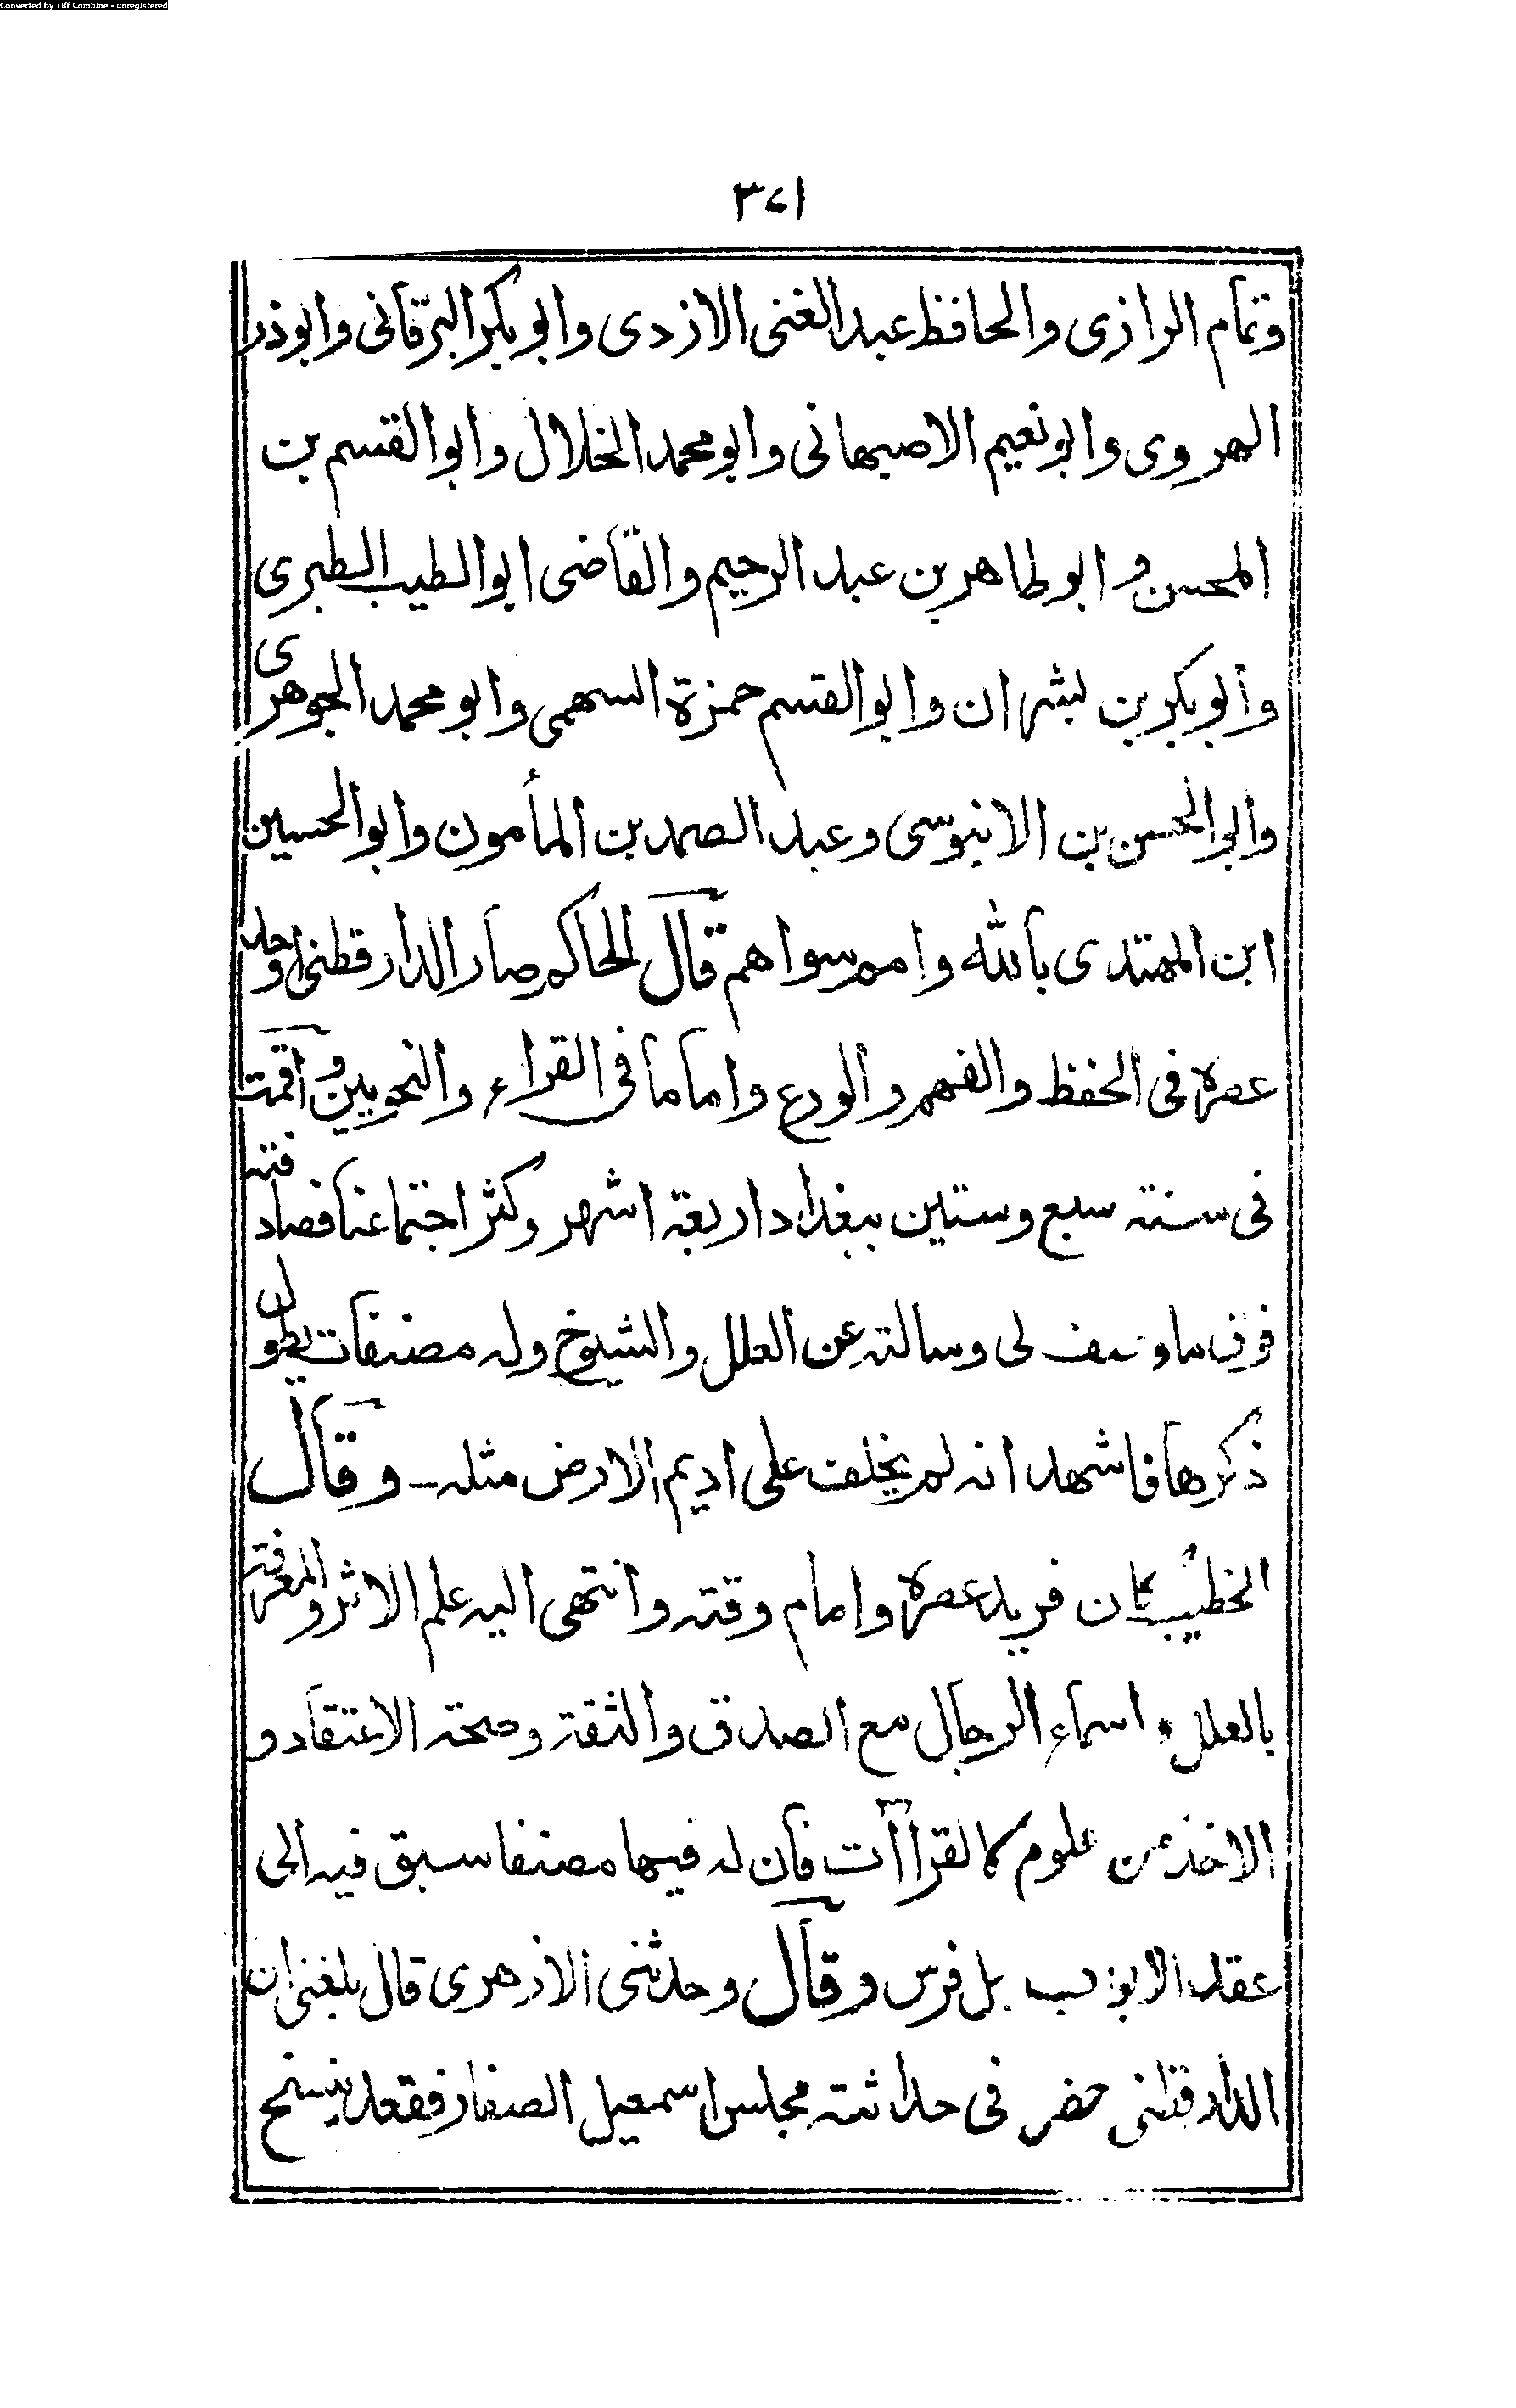 Converted by Tiff Combine - unregistered
٣٧١
وتمام الرازى والحافظ عبد الغنى الازدى وابو بكر البرقانى وابوذر
الهروى وابو نعيم الاصبهانى وابو محمد الخلال وابو القسم بن
المحسن و ابو طاهر بن عبد الرحيم والقاضى ابو الطيب الطبرى
وابو بكر بن بشران وابو القسم حمزة السهمى وابو محمد الجوهرى
وابو الحسن بن الابنوسى وعبد الصمد بن المأمون وابو الحسين
ابن المهتدى بالله وامم سواهم قال الحاكم صار الدارقطنى اوحد
عصره فى الحفظ والفهم والورع واماما فى القراء والنحويين و اقمت
فى سنة سبع وستين ببغداد اربعة اشهر وكثر اجتماعنا فصادفته
فوق ما وصف لى وسالته عن العلل والشيوخ وله مصنفات يطول
ذكرها فاشهد انه لم يخلف على اديم الارض مثله – وقال
الخطيب كان فريد عصره وامام وقته وانتهى اليه علم الاثر والمعرفة
بالعلل و اسماء الرجال مع الصدق والثقة وصحة الاعتقاد و
الاخذ من علوم كالقراآت فان له فيها مصنفا سبق فيه الى
عقد الابواب قبل فرس وقال وحدثنى الازهرى قال بلغنى ان
الدارقطنى حضر فى حداثته مجلس اسمعيل الصفار فقعد ينسخ